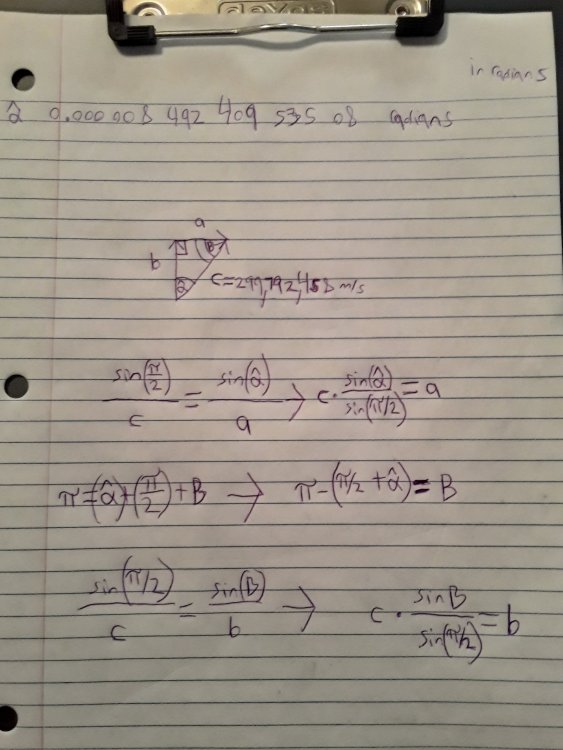 in radians
α̂ 0.000 008 492 409 535 08 radians
a
b B
α̂ c=299,792,458 m/s
sin(π/2)/c = sin(α̂)/a → c·sin(α̂)/sin(π/2) = a
π=(α̂)+(π/2)+B → π-(π/2+α̂)=B
sin(π/2)/c = sin(B)/b → c·sinB/sin(π/2)=b